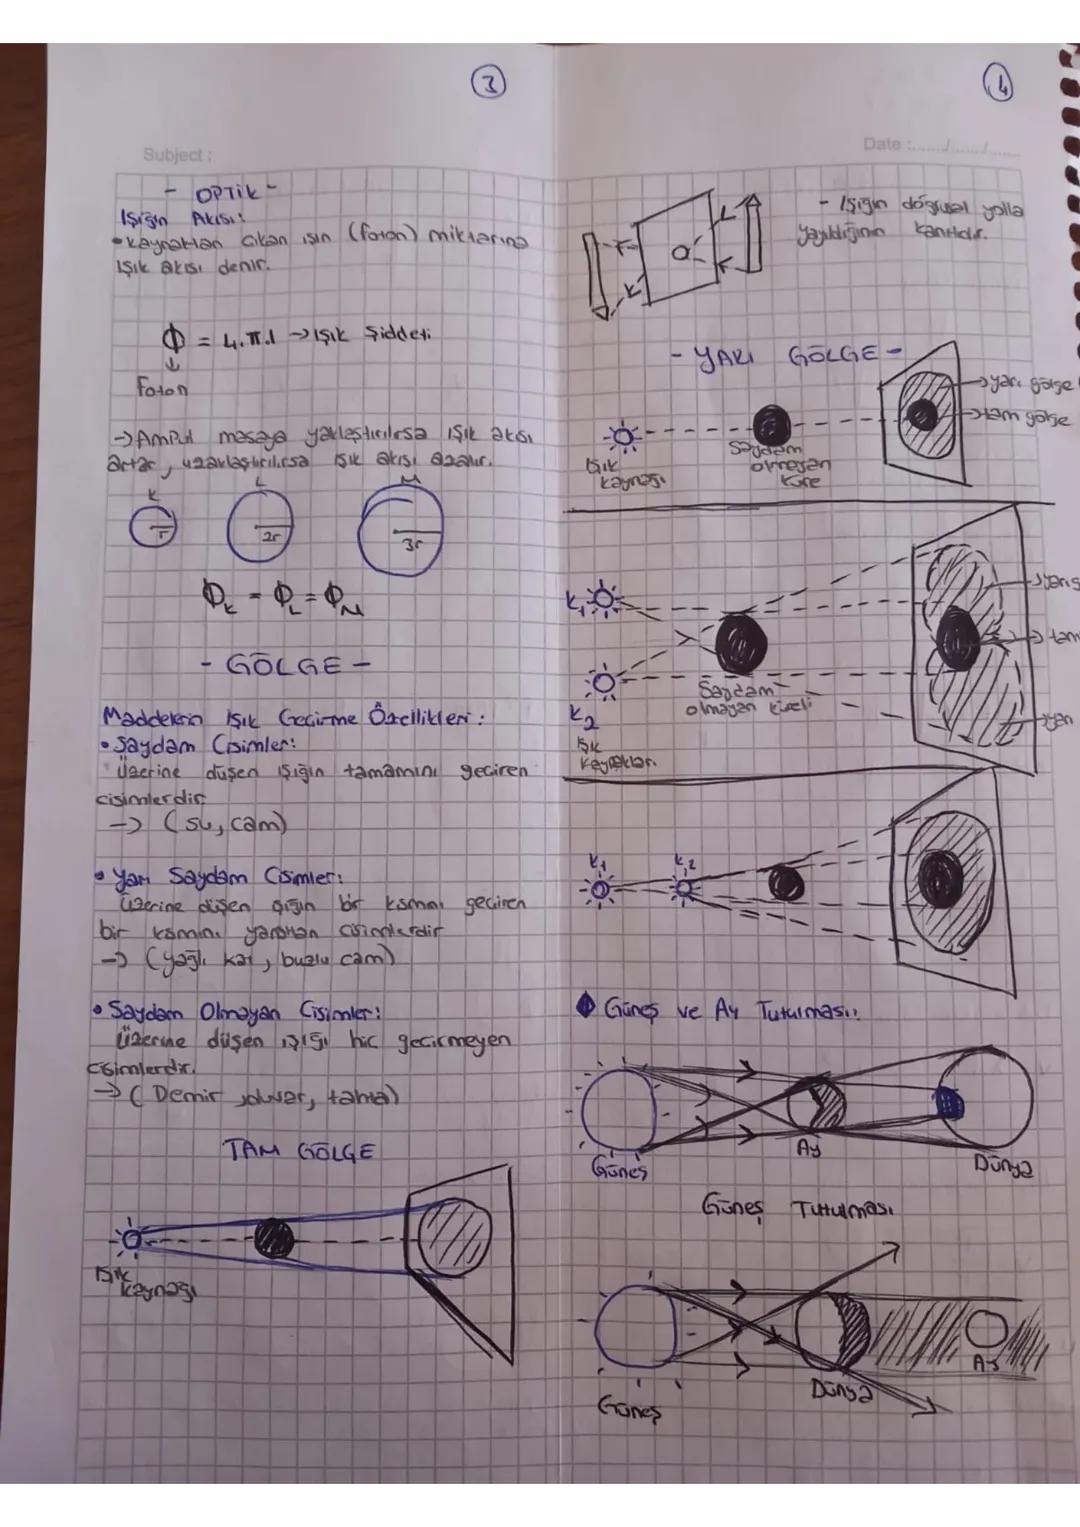 3
Subject:
- OPTİK -
Işığın Akısı:
• Kaynaktan çıkan ışın (foton) miktarına
ışık akısı denir.
Φ = 4.π.I → Işık Şiddeti
↓
Foton
→ Ampul masaya yaklaştırılırsa ışık akısı
artar, uzaklaştırılırsa ışık akısı azalır.
K L M
r 2r 3r
ΦK = ΦL = ΦM
- GÖLGE -
Maddelerin Işık Geçirme Özellikleri:
• Saydam Cisimler:
Üzerine düşen ışığın tamamını geçiren
cisimlerdir.
→ (su, cam)
• Yarı Saydam Cisimler:
Üzerine düşen ışığın bir kısmını geçiren
bir kısmını yansıtan cisimlerdir
→ (yağlı kağıt, buzlu cam)
• Saydam Olmayan Cisimler:
Üzerine düşen ışığı hiç geçirmeyen
cisimlerdir.
→ (Demir, duvar, tahta)
TAM GÖLGE
Işık
kaynağı
4
Date :....../....../......
- Işığın doğrusal yolla
yayıldığının kanıtıdır.
- YARI GÖLGE -
→ yarı gölge
→ tam gölge
Işık
kaynağı
Saydam
olmayan
küre
K1
→ tam
K2
Saydam
olmayan küreli
Işık
kaynakları
→ yarı
K1 K2
Güneş ve Ay Tutulması:
Güneş
Ay
Dünya
Güneş Tutulması
Güneş
Dünya
Ay